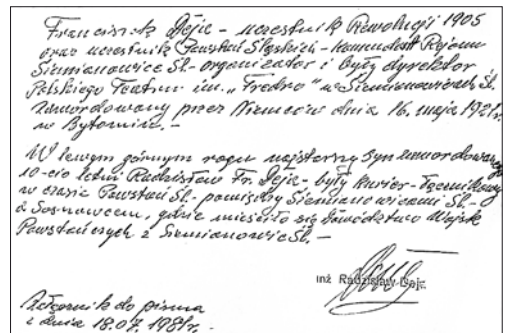 Franciszek Dejc - uczestnik Rewolucji 1905
oraz uczestnik Powstań Śląskich - komendant Rejonu
Siemianowice Śl. - organizator i były dyrektor
Polskiego Teatru im. „Fredro" w Siemianowicach Śl.
zamordowany przez Niemców dnia 16. maja 1921r.
w Bytomiu. -
W lewym górnym rogu najstarszy syn zamordowanego
10-cio letni Radzisław Fr. Dejc - były kurier - łącznikowy
w czasie Powstań Śl. - pomiędzy Siemianowicami Śl. -
a Sosnowcem, gdzie mieściło się Dowództwo Wojsk
Powstańczych z Siemianowic Śl. -
inż Radzisław Dejc
Załącznik do pisma
z dnia 18.07.1981r. -